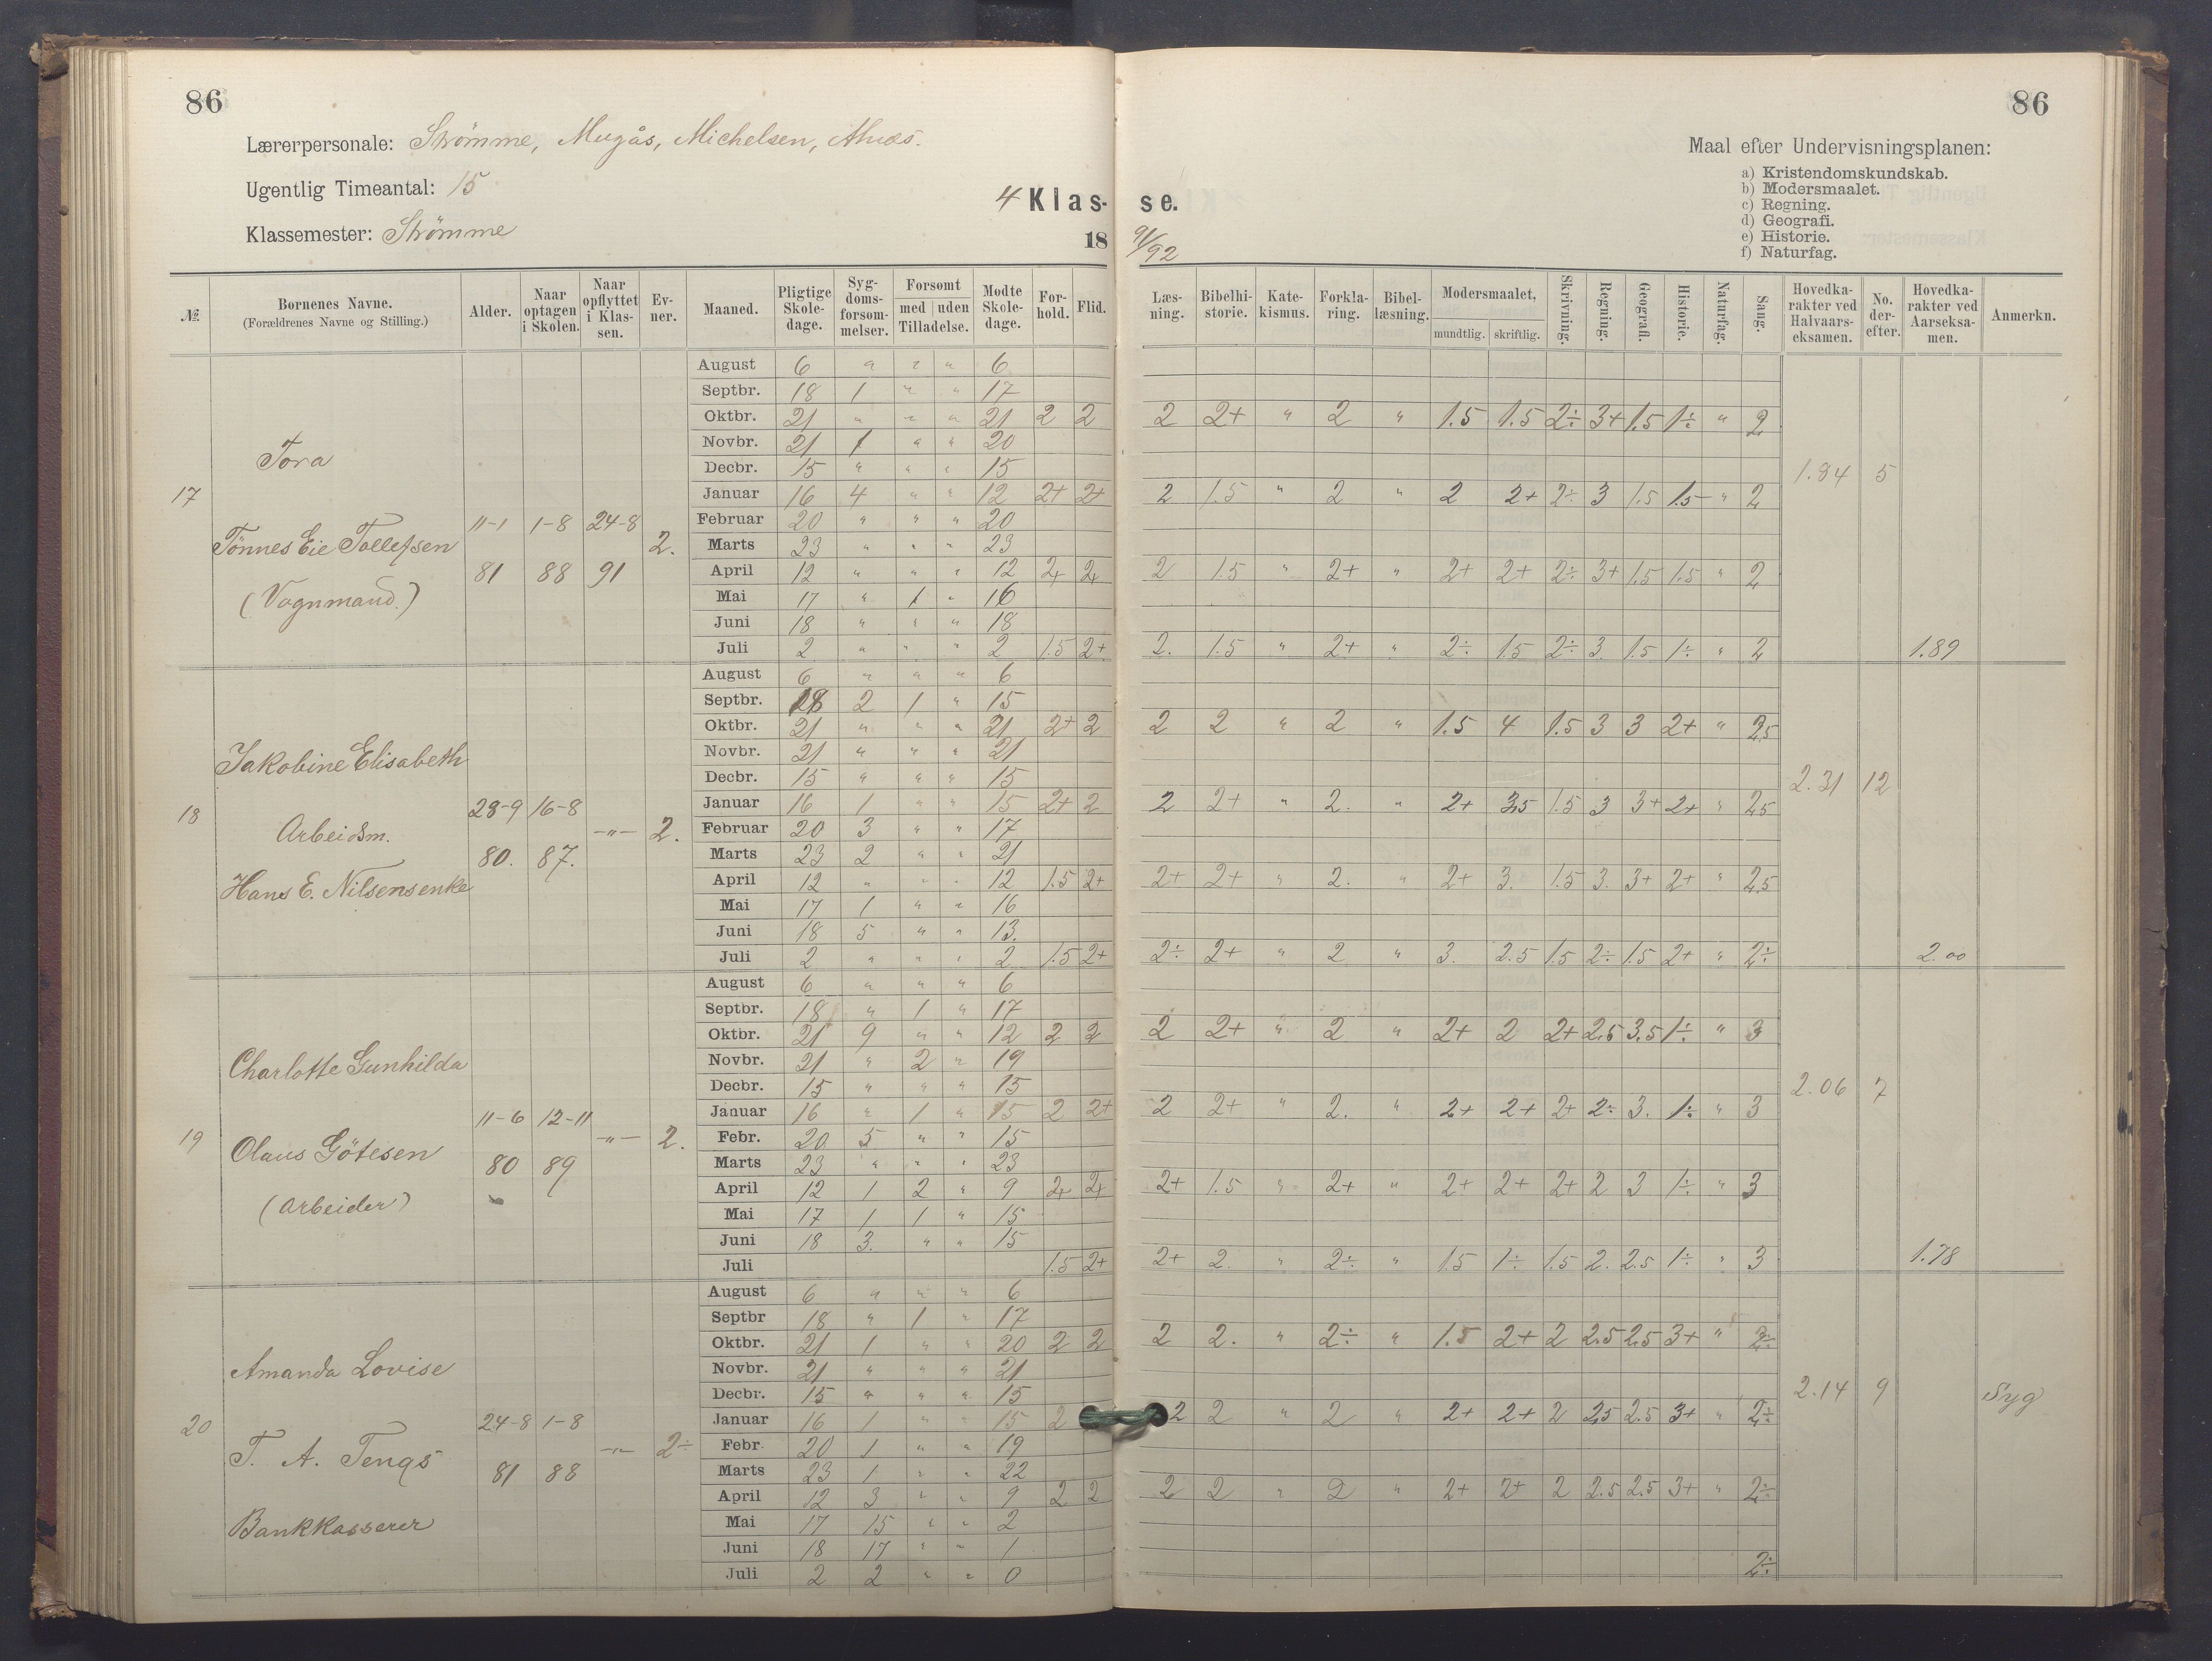 86
86
Lærerpersonale: Strømme, Mugås, Michelsen,
Ugentlig Timeantal: 15
Klassemester: Strømme
4 Klas- se.
18 91/92
Maal efter Undervisningsplanen:
a) Kristendomskundskab.
b) Modersmaalet.
c) Regning.
d) Geografi.
e) Historie.
f) Naturfag.
№. Børnenes Navne. (Forældrenes Navne og Stilling.) Alder. Naar optagen i Skolen. Naar opflyttet i Klassen. Evner. Maaned. Pligtige Skoledage. Sygdomsforsømmelser. Forsømt med uden Tilladelse. Mødte Skoledage. Forhold. Flid. Læsning. Bibelhistorie. Katekismus. Forklaring. Bibellæsning. Modersmaalet, mundtlig. skriftlig. Skrivning. Regning. Geografi. Historie. Naturfag. Sang. Hovedkarakter ved Halvaarseksamen. No. derefter. Hovedkarakter ved Aarseksamen. Anmerkn.
17 Tora
Tönnes Eie Tollefsen
(Vognmand.)
11-1 81 1-8 88 24-8 91 2.
August 6 " " " 6
Septbr. 18 1 " " 17
Oktbr. 21 " " " 21 2 2 2 2+ " 2 " 1.5 1.5 2÷ 3+ 1.5 1÷ " 2
Novbr. 21 1 " " 20
Decbr. 15 " " " 15 1.84 5
Januar 16 4 " " 12 2+ 2+ 2 1.5 " 2 " 2 2+ 2÷ 3 1.5 1.5 " 2
Februar 20 " " " 20
Marts 23 " " " 23
April 12 " " " 12 2+ 2+ 2 1.5 " 2+ " 2+ 2+ 2÷ 3+ 1.5 1.5 " 2
Mai 17 " 1 " 16
Juni 18 " " " 18
Juli 2 " " " 2 1.5 2+ 2. 1.5 " 2+ " 2÷ 1.5 2÷ 3. 1.5 1÷ " 2 1.89
18 Jakobine Elisabeth
Arbeidsm.
Hans E. Nilsens enke
28-9 80. 16-8 87. -"- 2.
August 6 " " " 6
Septbr. 18 2 1 " 15
Oktbr. 21 " " " 21 2+ 2 2 2 " 2 " 1.5 4 1.5 3 3 2+ " 2.5
Novbr. 21 " " " 21
Decbr. 15 " " " 15 2.31 12
Januar 16 1 " " 15 2+ 2 2 2+ " 2. " 2+ 3.5 1.5 3 3+ 2+ " 2.5
Februar 20 3 " " 17
Marts 23 2 " " 21
April 12 " " " 12 1.5 2+ 2+ 2+ " 2. " 2+ 3. 1.5 3. 3+ 2+ " 2.5
Mai 17 1 " " 16
Juni 18 5 " " 13.
Juli 2 " " " 2 1.5 2+ 2÷ 2+ " 2 " 3. 2.5 1.5 2÷ 1.5 2+ " 2÷ 2.00
19 Charlotte Gunhilda
Olaus Götesen
(Arbeider)
11-6 80 12-11 89 -"- 2.
August 6 " " " 6
Septbr. 18 " 1 " 17
Oktbr. 21 9 " " 12 2 2 2 2+ " 2 " 2+ 2 2+ 2.5 3.5 1÷ " 3
Novbr. 21 " 2 " 19
Decbr. 15 " " " 15 2.06 7
Januar 16 " 1 " 15 2 2+ 2 2+ " 2. " 2+ 2+ 2+ 2÷ 3. 1÷ " 3
Febr. 20 5 " " 15
Marts 23 " " " 23
April 12 1 2 " 9 2+ 2+ 2+ 1.5 " 2+ " 2+ 2+ 2+ 2 3 1÷ " 3
Mai 17 1 1 " 15
Juni 18 3. " " 15
Juli 1.5 2+ 2+ 2. " 2÷ " 1.5 1÷ 1.5 2. 2.5 1÷ " 3 1.78
20 Amanda Lovise
T. A. Tengs
Bankkasserer
24-8 81 1-8 88 -"- 2÷
August 6 " " " 6
Septbr 18 " 1 " 17
Oktbr. 21 1 " " 20 2 2 2 2. " 2÷ " 1.5 2+ 2 2.5 2.5 3+ " 2÷
Novbr. 21 " " " 21
Decbr. 15 " " " 15 2.14 9 Syg
Januar 16 1 " " 15 2 2 2 " 2 " 2+ 2+ 2 2.5 2.5 3+ " 2÷
Febr 20 1 " " 19
Marts 23 1 " " 22
April 12 3 " " 9 2 2 2 2 " 2 " 2+ 2+ 2 2.5 2.5 3+ " 2÷
Mai 17 15 " " 2
Juni 18 17 " " 1
Juli 2 2 " " 0 2÷